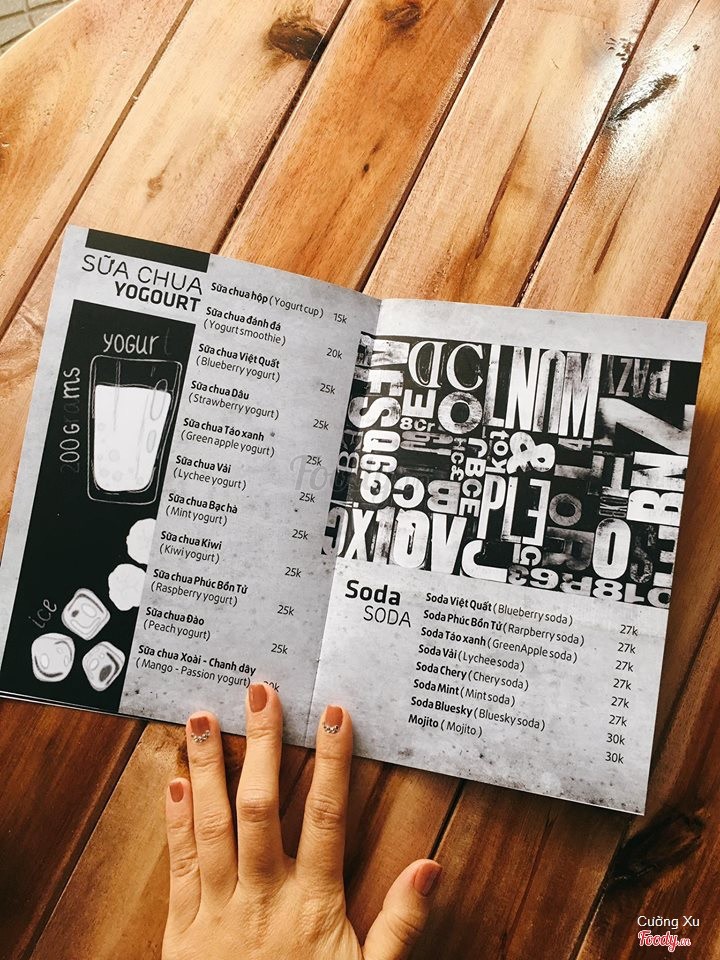 SỮA CHUA
YOGOURT
yogur
200 Grams
ice
Sữa chua hộp ( Yogurt cup ) 15k
Sữa chua đánh đá
( Yogurt smoothie ) 20k
Sữa chua Việt Quất
( Blueberry yogurt ) 25k
Sữa chua Dâu
( Strawberry yogurt ) 25k
Sữa chua Táo xanh
( Green apple yogurt ) 25k
Sữa chua Vải
( Lychee yogurt ) 25k
Sữa chua Bạc hà
( Mint yogurt ) 25k
Sữa chua Kiwi
( Kiwi yogurt ) 25k
Sữa chua Phúc Bồn Tử
( Raspberry yogurt ) 25k
Sữa chua Đào
( Peach yogurt ) 25k
Sữa chua Xoài - Chanh dây
( Mango - Passion yogurt )
Soda
SODA
Soda Việt Quất ( Blueberry soda ) 27k
Soda Phúc Bồn Tử ( Rarpberry soda ) 27k
Soda Táo xanh ( GreenApple soda ) 27k
Soda Vải ( Lychee soda ) 27k
Soda Chery ( Chery soda ) 27k
Soda Mint ( Mint soda ) 27k
Soda Bluesky ( Bluesky soda ) 30k
Mojito ( Mojito ) 30k
Cường Xu
Foody.vn